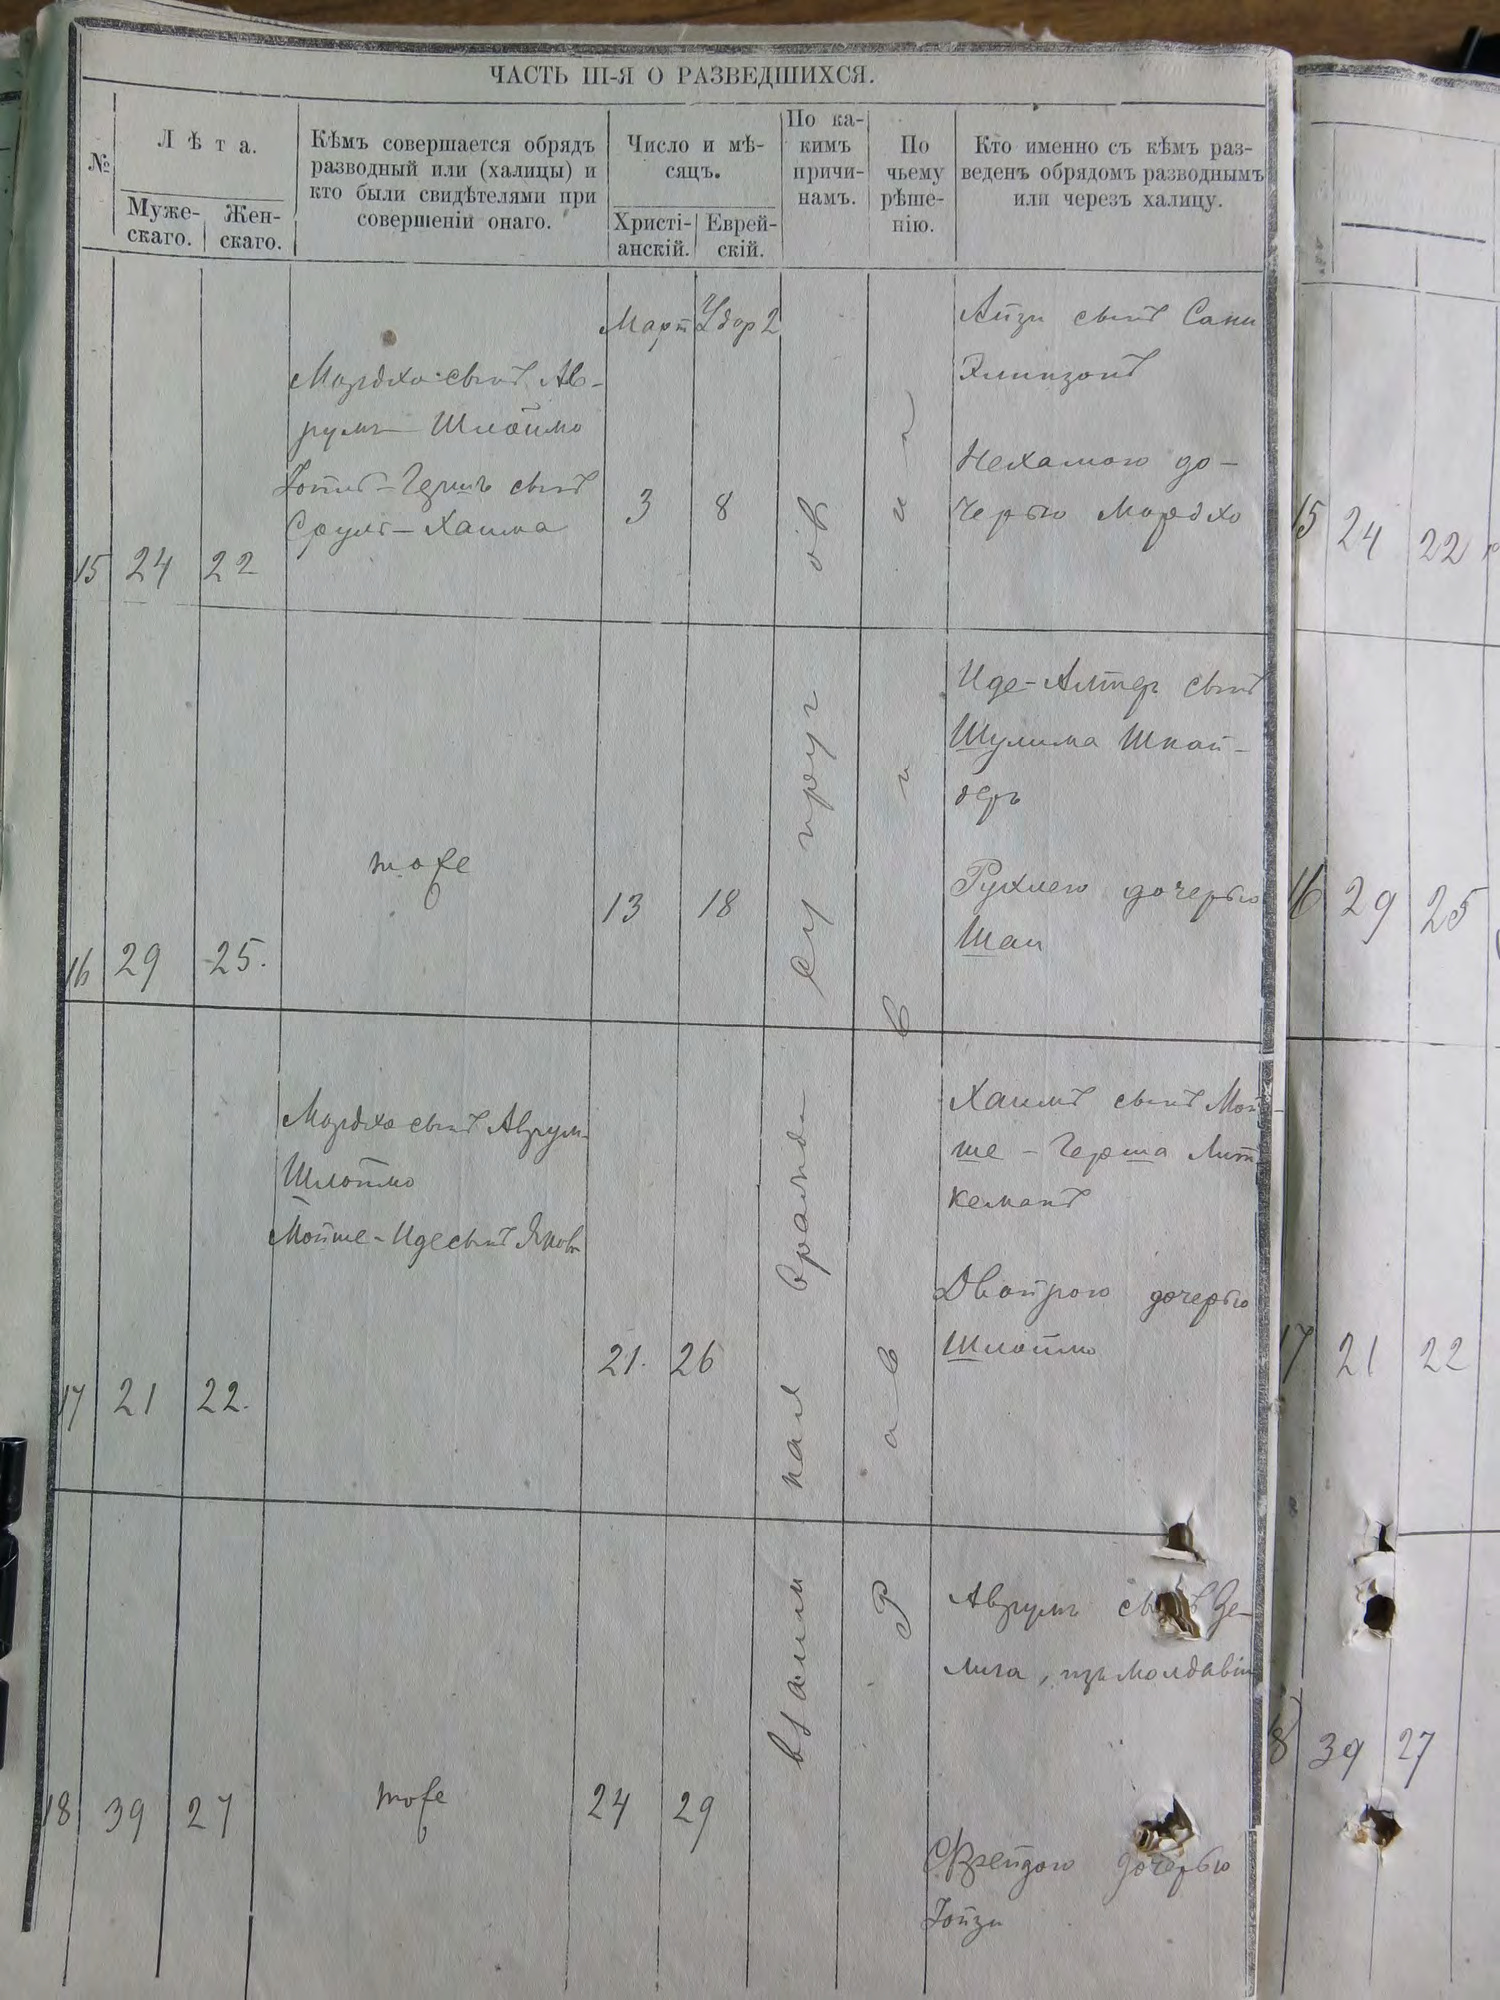 ЧАСТЬ III-Я О РАЗВЕДШИХСЯ.
№
Лѣта.
Муже-
скаго.
Жен-
скаго.
Кѣмъ совершается обрядъ
разводный или (халицы) и
кто были свидѣтелями при
совершеніи онаго.
Число и мѣ-
сяцъ.
Христі-
анскій.
Еврей-
скій.
По ка-
кимъ
причи-
намъ.
По
чьему
рѣше-
нію.
Кто именно съ кѣмъ раз-
веденъ обрядомъ разводнымъ
или через халицу.
15
24
22
Мордхо сынъ Ав-
румъ Шлоймо
Герцъ сынъ
Сруль-Хаима
Март
3
Адар 2
8
Айзи сынъ Сани
Элинзонъ
Нехамою до-
черью Мордхо
16
29
25.
тоже
13
18
Иде-Алтер сынъ
Шулима Шнай-
деръ
Рухлею дочерью
Шаи
17
21
22.
Мордхо сынъ Аврум
Шлоймо
Мойше-Иде сынъ Янов
21.
26
Хаимъ сынъ Мой-
ше-Герша Лит
кеманъ
Двойрою дочерью
Шлоймо
18
39
27
тоже
24
29
Аврумъ сынъ Зе-
лига, изъ Молдавіи
Фрейдою дочерью
Іойзи
взаимная вражда супругов
Раввин
15
24
22
16
29
25
17
21
22
8
39
27